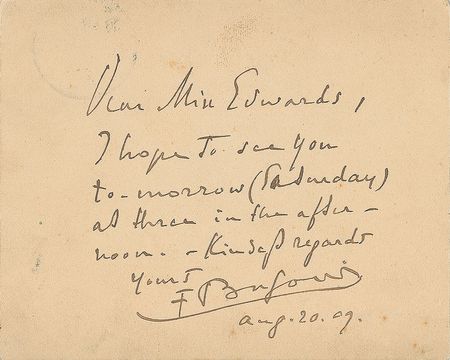 Dear Miss Edwards,
I hope to see you
to-morrow (Saturday)
at three in the after-
noon. - Kindest regards
Yours
F Busoni
Aug. 20. 09.